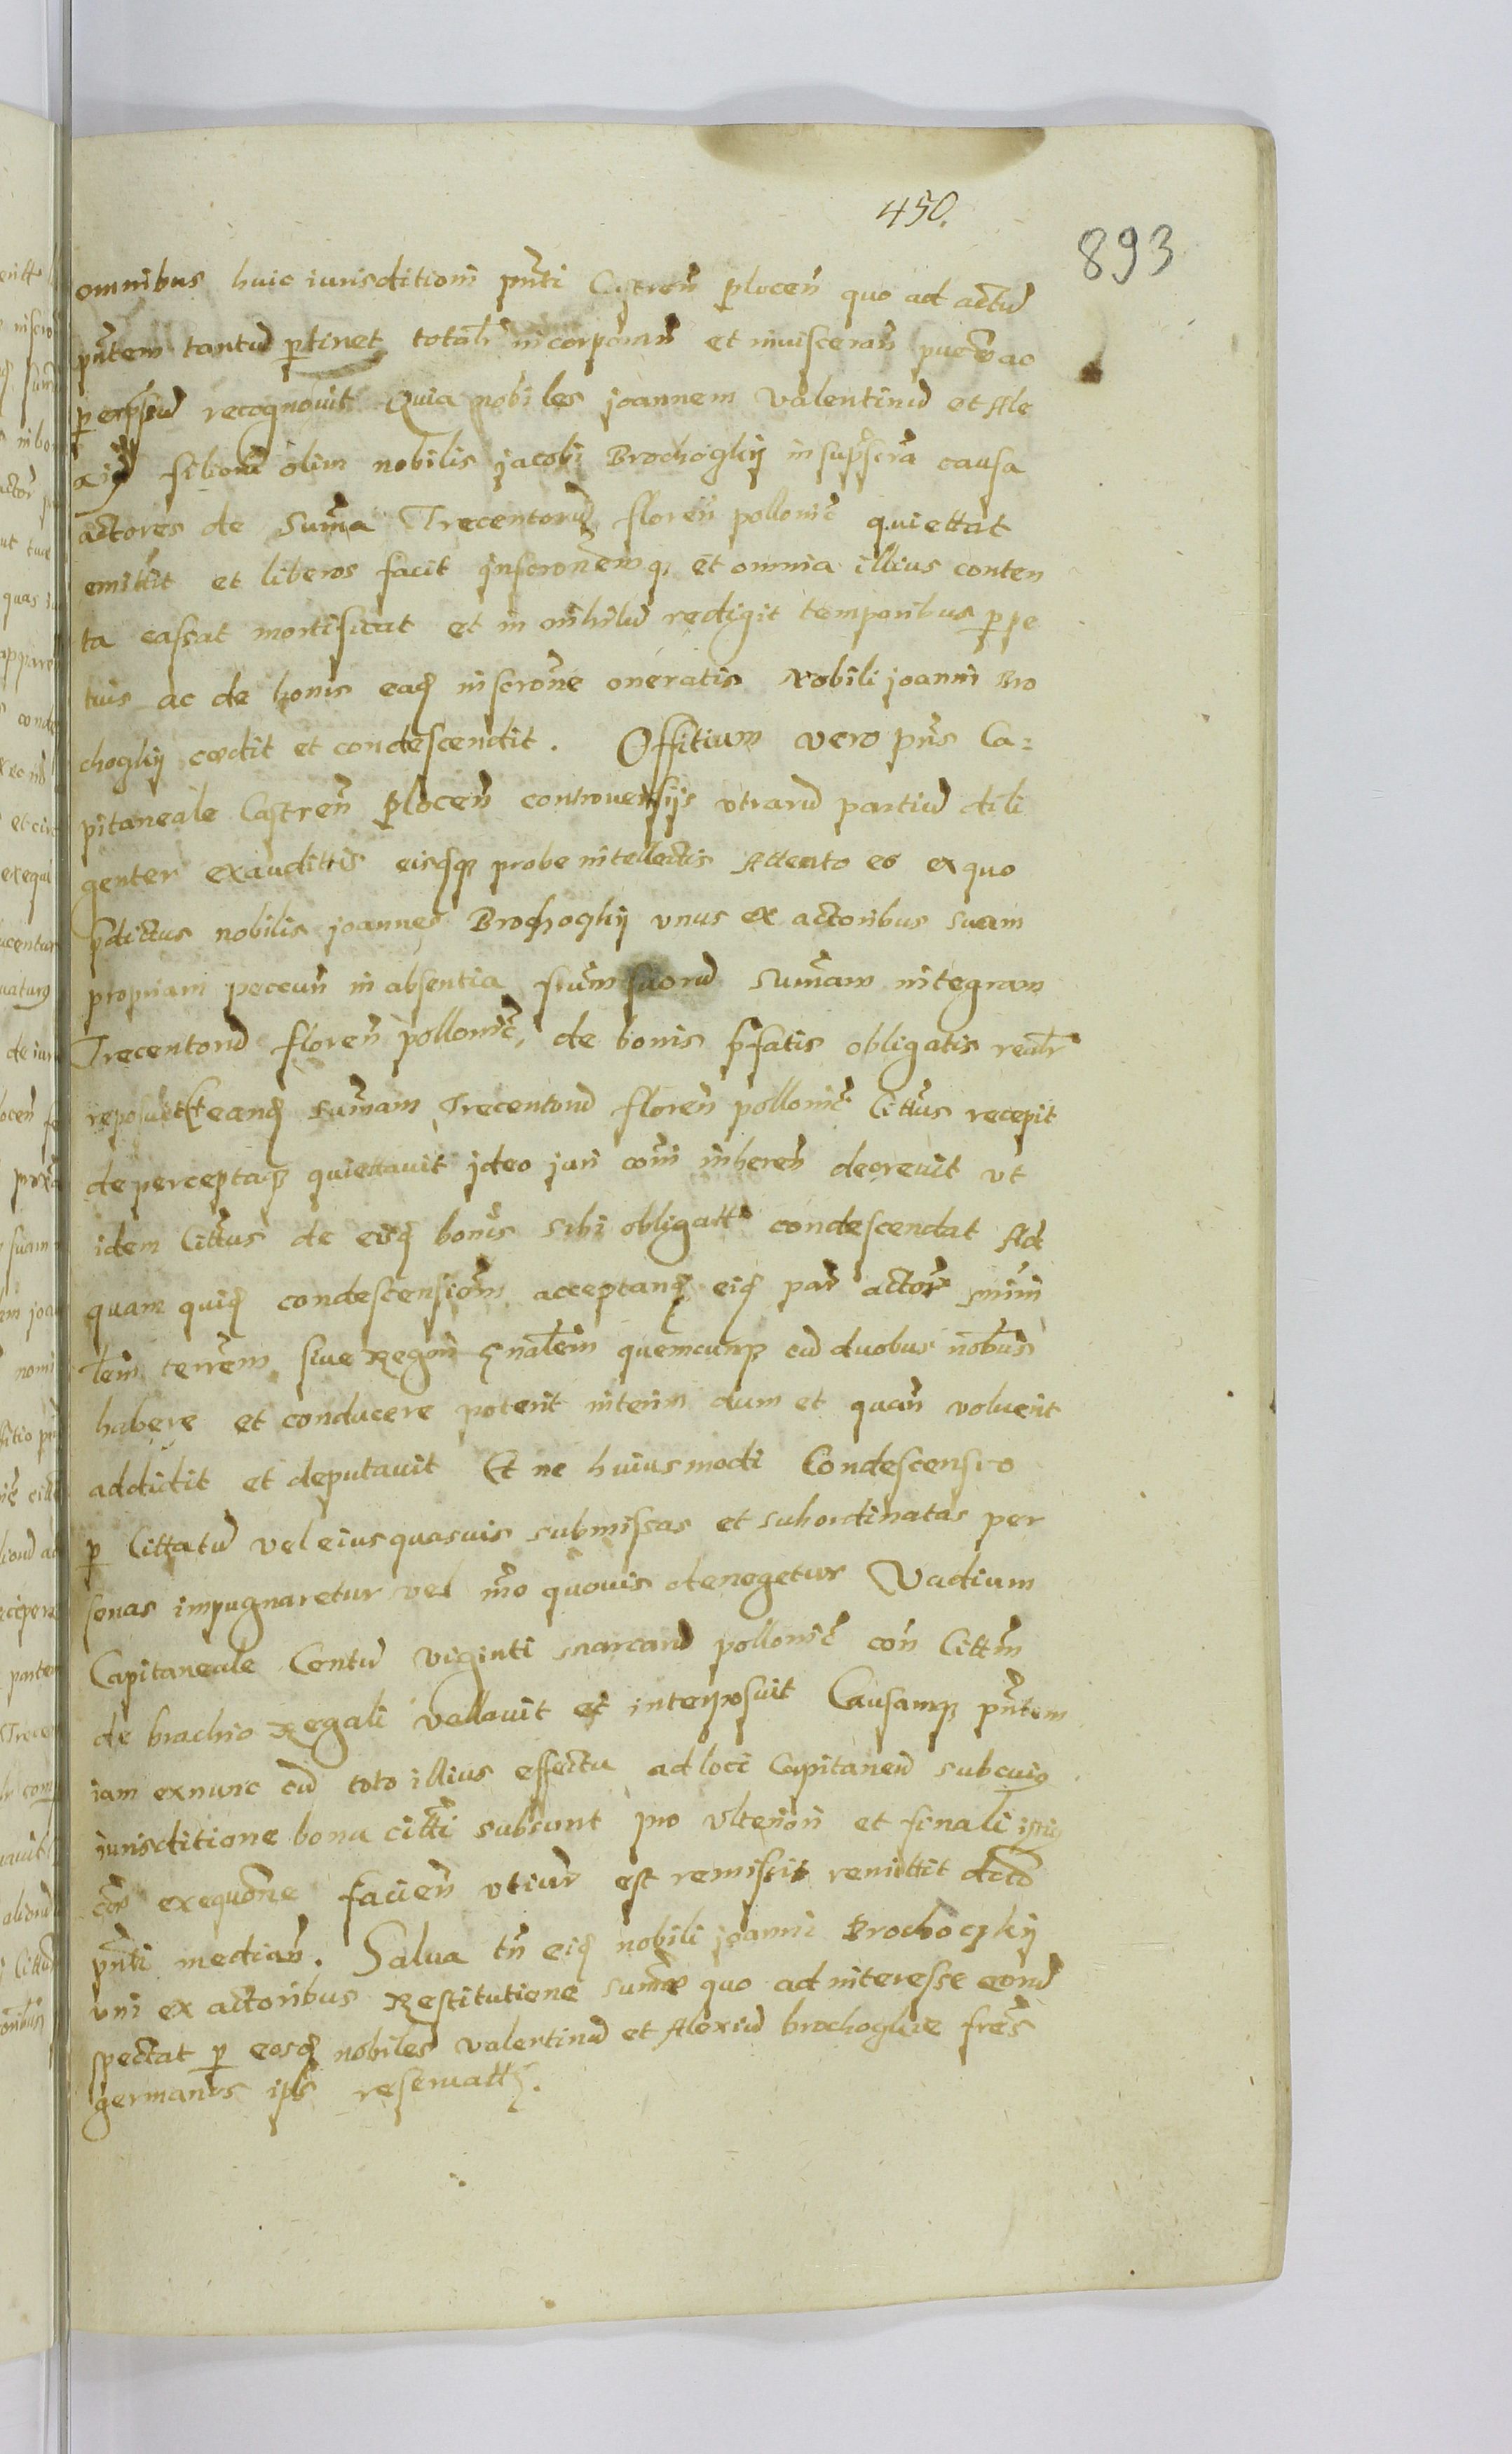 450.
893
omnibus huic iurisditioni pñti Castreñ plocen̄ quo ad actũ
pñtem tantũ ptinet totalr incorporan̄ et inuisceran̄ puerẽ ac
p expssũ recognouit Quia nobiles joannem Valentinũ et Ale
xiũ filiorũ olim nobilis jacobi Brochoglhij in supscra causa
actores de Sum̃a Trecentorũ floreñ pollonic̃ quiettat
emittit et liberos facit jnscronemq; et omnia illius conten
ta cassat mortificat et in nihilũ redigit temporibus ppe
tuis ac de bonis eaq; inscrone oneratis Nobili joanni Bro
choglhij cedit et condescendit. Offitium vero pñs Ca:
pitaneale Castreñ plocen̄ controuersijs vtrarũ partiũ dili
genter exaudittis eisq; probe intellectis Attento eo ex quo
pdictus nobilis joannes Brochoglhij vnus ex actoribus suam
propriam pecun̄ in absentia frum̃ suorũ Sum̃am integram
Trecentorũ floreñ pollonic̃, de bonis pfatis obligatis realr
reposuit Et eanq; Sum̃am Trecentorũ floreñ pollonic̃ Citt̃us recepit
de perceptaq; quiettauit jdeo juri com̃i inheren̄ decreuit vt
idem Citt̃us de eisq; bonis sibi obligatt̃ condescendat Ad
quam quiq; condescensionem acceptanq; eiq; par actor mini
lem terrem siue Regni gnalem quemcunq; cũ duobus nobus
habere et conducere poterit interim dum et quan̄ voluerit
addidit et deputauit Et ne huiusmodi Condescensio
p Cittatũ vel eius quasuis submissas et subordinatas per
sonas impugnaretur vel mõ quouis denegetur Vadium
Capitaneale Centũ viginti marcarũ pollonic̃ con̄ Cittm̃
de brachio Regali vallauit et interposuit Causamq; pñtem
iam exnunc cũ toto illius effectu ad loci Capitaneũ sub cuiq;
iurisditione bona citt̃i subsunt pro vlteriori et finali istiq;
cõr exequone facien̄ vtiur est remissis remittit dcto
pñti median̄. Salua tñ eiq; nobili joanni Brochoczkij
vni ex actoribus Restitutione Sum̃e quo ad interesse eorũ
spectat p eosq; nobiles Valentinũ et Alexiũ brochoglue fres
germanos ips reseruatt.